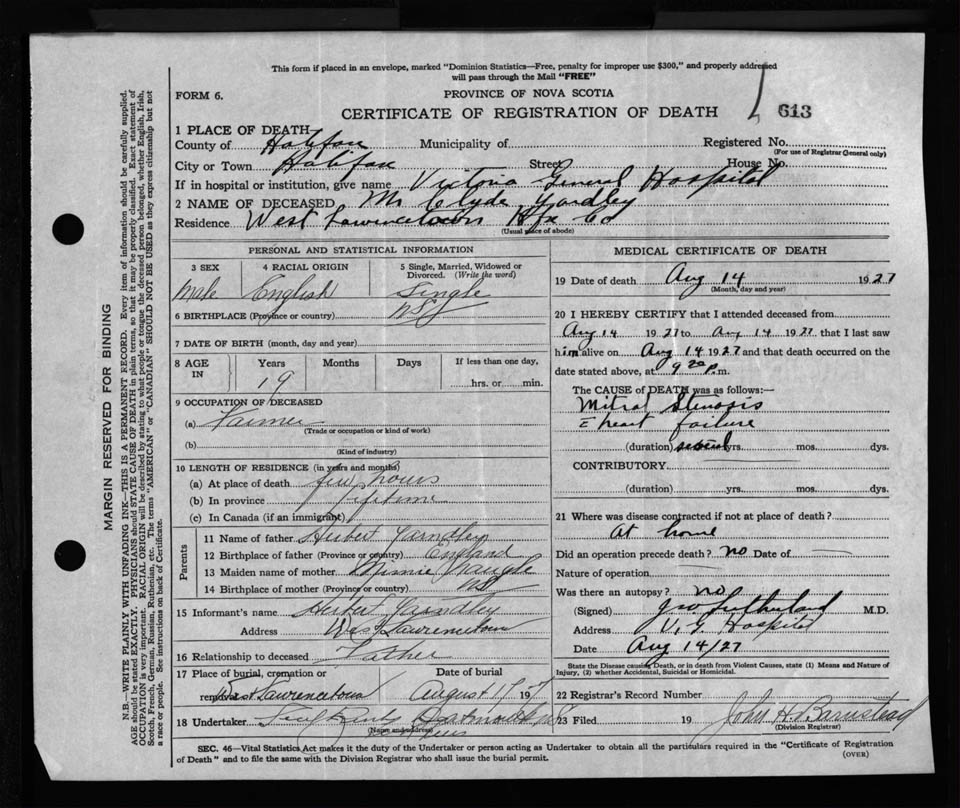 This form if placed in an envelope, marked "Dominion Statistics—Free, penalty for improper use $300," and properly addressed
will pass through the Mail "FREE"
FORM 6.
PROVINCE OF NOVA SCOTIA
CERTIFICATE OF REGISTRATION OF DEATH
613
1 PLACE OF DEATH
County of Halifax Municipality of Registered No.
(For use of Registrar General only)
City or Town Halifax Street House No.
If in hospital or institution, give name Victoria General Hospital
2 NAME OF DECEASED Mr Clyde Yardley
Residence West Lawrencetown Hfx Co
(Usual place of abode)
PERSONAL AND STATISTICAL INFORMATION
3 SEX 4 RACIAL ORIGIN 5 Single, Married, Widowed or Divorced. (Write the word)
Male English Single
6 BIRTHPLACE (Province or country) NS
7 DATE OF BIRTH (month, day and year)
8 AGE IN Years Months Days If less than one day,
19 hrs. or min.
9 OCCUPATION OF DECEASED
(a) Farmer
(Trade or occupation or kind of work)
(b)
(Kind of industry)
10 LENGTH OF RESIDENCE (in years and months)
(a) At place of death few hours
(b) In province lifetime
(c) In Canada (if an immigrant)
Parents
11 Name of father Herbert Yarndley
12 Birthplace of father (Province or country) England
13 Maiden name of mother Minnie
14 Birthplace of mother (Province or country) NS
15 Informant's name Herbert Yarndley
Address West Lawrencetown
16 Relationship to deceased Father
17 Place of burial, cremation or removal Date of burial
West Lawrencetown August 17 1927
18 Undertaker Dartmouth NS
(Name and address)
MEDICAL CERTIFICATE OF DEATH
19 Date of death Aug 14 1927
(Month, day and year)
20 I HEREBY CERTIFY that I attended deceased from
Aug 14 1927 to Aug 14 1927 that I last saw
him alive on Aug 14 1927 and that death occurred on
date stated above, at 9 20 p.m.
The CAUSE of DEATH was as follows:—
Mitral Stenosis
c heart failure
(duration) several yrs. mos. dys.
CONTRIBUTORY
(duration) yrs. mos. dys.
21 Where was disease contracted if not at place of death?
At home
Did an operation precede death? no Date of
Nature of operation
Was there an autopsy? no
(Signed) J W Sutherland M.D.
Address V. G. Hospital
Date Aug 14/27
State the Disease causing Death, or in death from Violent Causes, state (1) Means and Nature of
Injury, (2) whether Accidental, Suicidal or Homicidal.
22 Registrar's Record Number
23 Filed 19 John H. Barnstead
(Division Registrar)
SEC. 46—Vital Statistics Act makes it the duty of the Undertaker or person acting as Undertaker to obtain all the particulars required in the "Certificate of Registration
of Death" and to file the same with the Division Registrar who shall issue the burial permit.
(OVER)
MARGIN RESERVED FOR BINDING
N.B.—WRITE PLAINLY WITH UNFADING INK—THIS IS A PERMANENT RECORD. Every item of information should be carefully supplied.
AGE should be stated EXACTLY. PHYSICIANS should STATE CAUSE OF DEATH in plain terms, so that it may be properly classified. Exact statement of
OCCUPATION is very important. RACIAL ORIGIN will be described by stating to what people or tongue the deceased person belonged, whether English, Irish,
Scotch, French, German, Russian, Ruthenian, etc. The terms "AMERICAN" or "CANADIAN" SHOULD NOT BE USED as they express citizenship but not
a race or people. See instructions on back of Certificate.